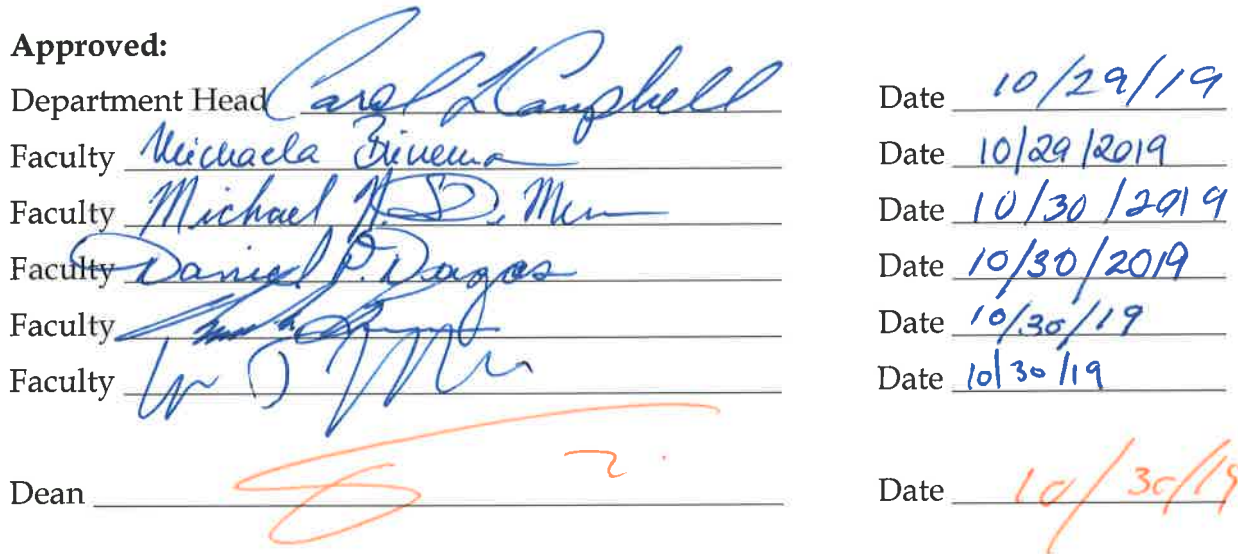 Approved:
Department Head Carol L Campbell Date 10/29/19
Faculty Michaela Date 10/29/2019
Faculty Michael Date 10/30/2019
Faculty Daniel P. Dugas Date 10/30/2019
Faculty Date 10/30/19
Faculty Date 10/30/19
Dean Date 10/30/19